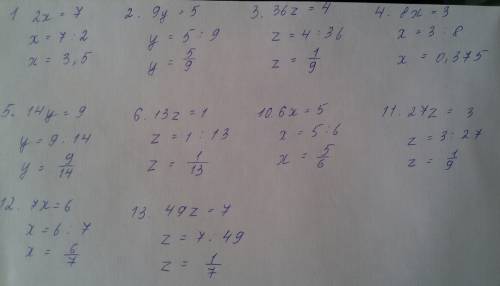 1. 2x = 7
x = 7 : 2
x = 3,5
2. 9y = 5
y = 5 : 9
y = 5/9
3. 36z = 4
z = 4 : 36
z = 1/9
4. 8x = 3
x = 3 : 8
x = 0,375
5. 14y = 9
y = 9 : 14
y = 9/14
6. 13z = 1
z = 1 : 13
z = 1/13
10. 6x = 5
x = 5 : 6
x = 5/6
11. 27z = 3
z = 3 : 27
z = 1/9
12. 7x = 6
x = 6 : 7
x = 6/7
13. 49z = 7
z = 7 : 49
z = 1/7